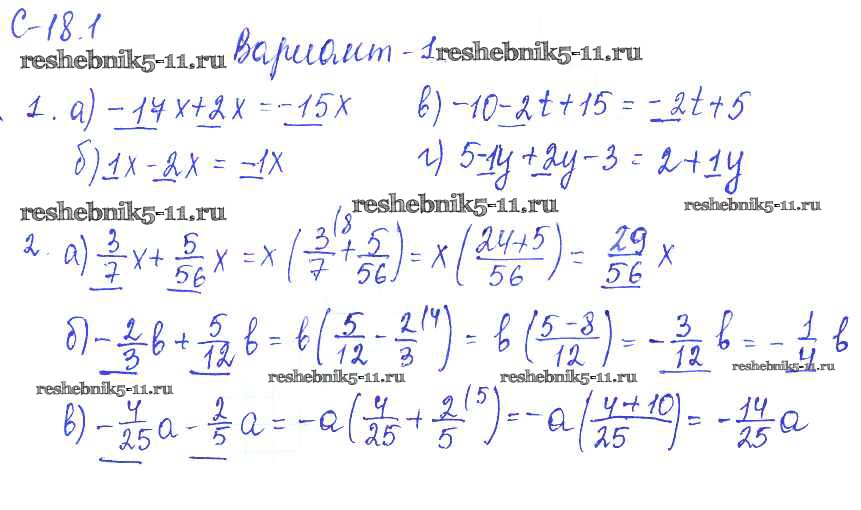 С-18.1
reshebnik5-11.ru Вариант - 1 reshebnik5-11.ru
1. а) -17x+2x = -15x в) -10-2t+15 = -2t+5
б) 1x-2x = -1x г) 5-1y+2y-3 = 2+1y
reshebnik5-11.ru reshebnik5-11.ru reshebnik5-11.ru
2. а) 3/7 x + 5/56 x = x (3/7 (8 + 5/56) = x ((24+5)/56) = 29/56 x
б) -2/3 b + 5/12 b = b (5/12 - 2/3 (4) = b ((5-8)/12) = -3/12 b = -1/4 b
reshebnik5-11.ru reshebnik5-11.ru reshebnik5-11.ru reshebnik5-11.ru
в) -4/25 a - 2/5 a = -a (4/25 + 2/5 (5) = -a ((4+10)/25) = -14/25 a